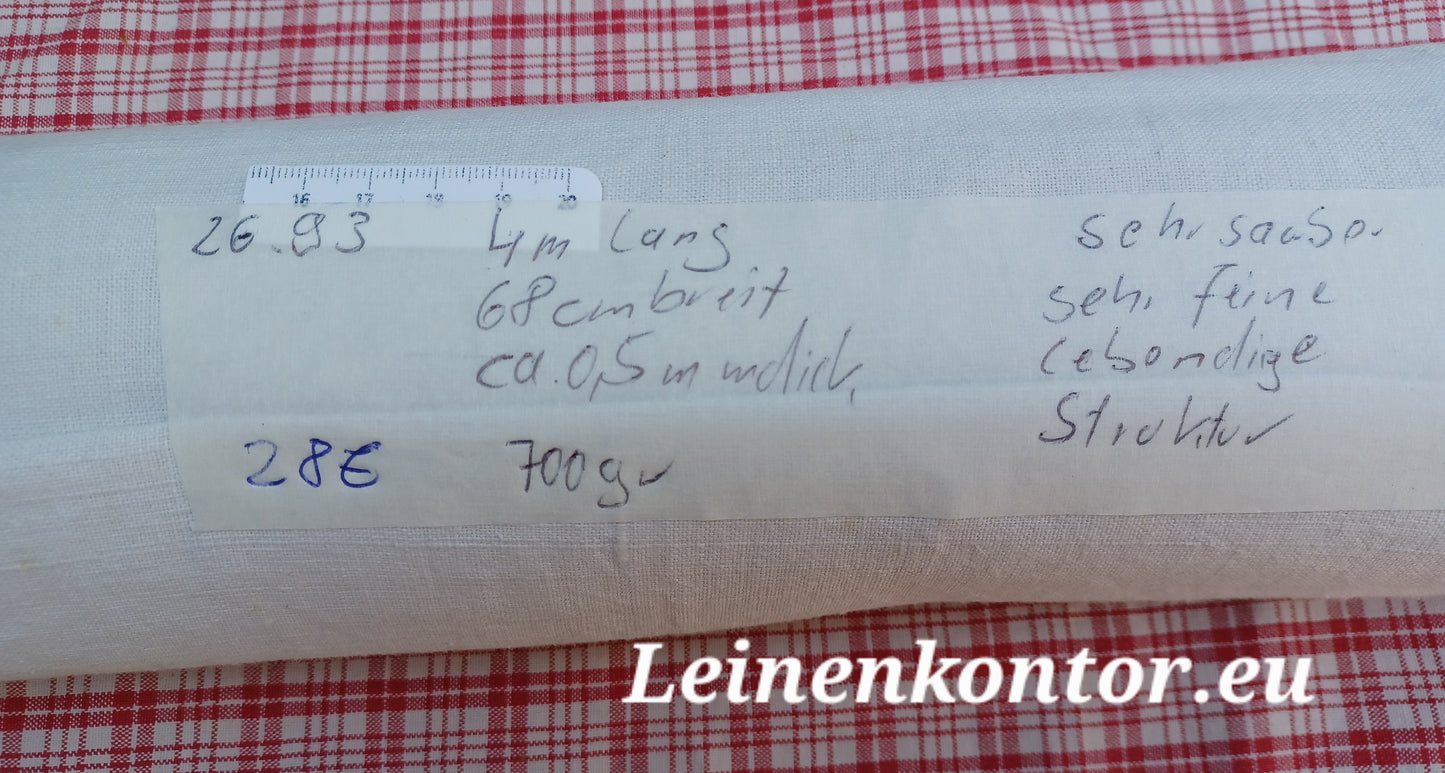 16 17 18 19 20
26.93
4m lang
68cm breit
ca. 0,5mm dick,
28€
700gr
sehr sauber
sehr feine
lebendige
Struktur
Leinenkontor.eu